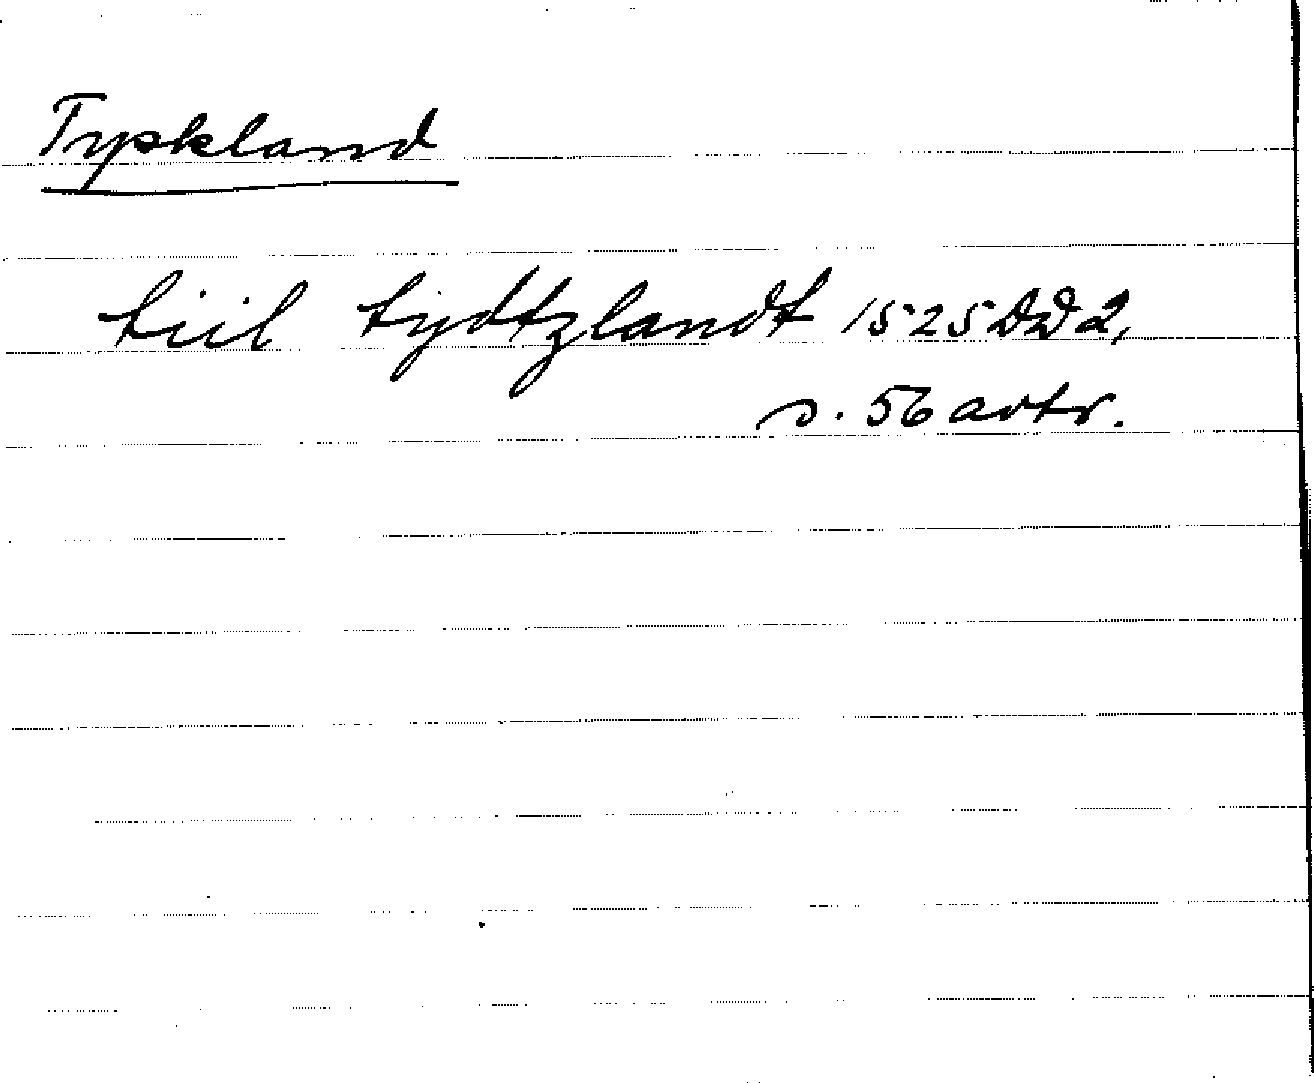 Tyskland
tiil tydtzlandt 1525 DD2,
s. 56 avtr.